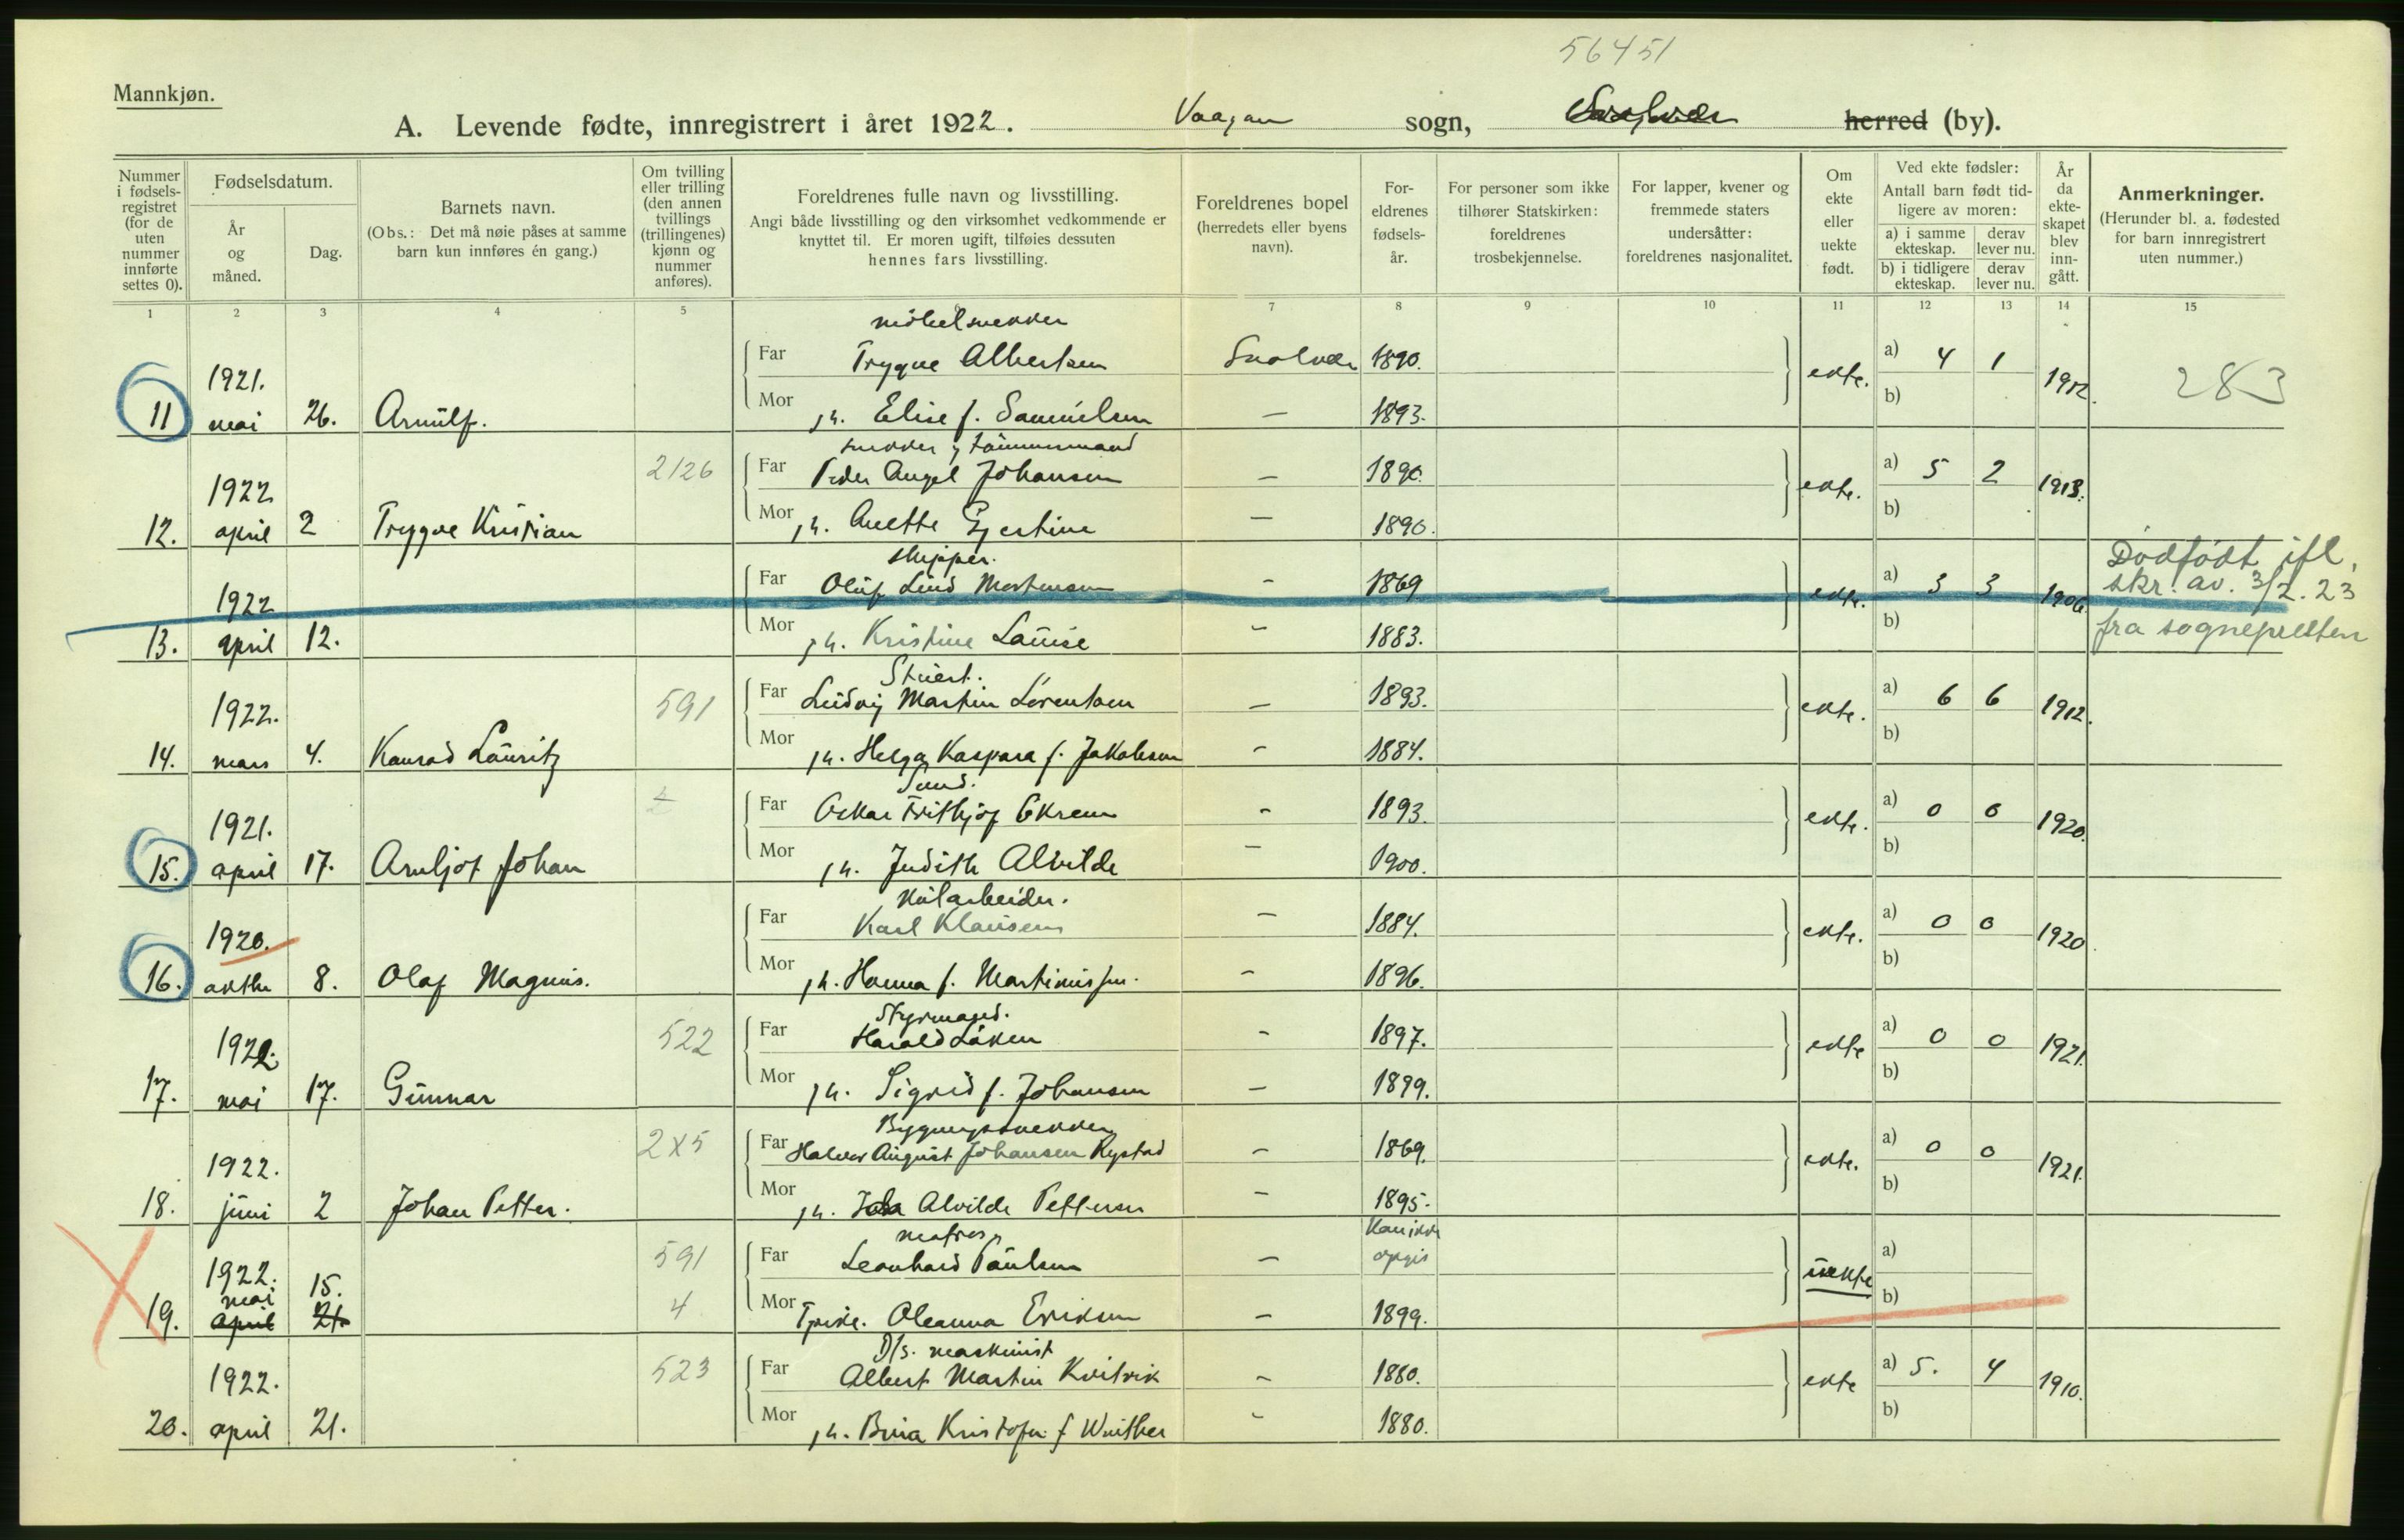 56451
Mannkjøn.
A. Levende fødte, innregistrert i året 1922. Vaagan sogn, Svolvær herred (by).
Nummer i fødselsregistret (for de uten nummer innførte settes 0).
Fødselsdatum.
År og måned.
Dag.
Barnets navn.
(Obs.: Det må nøie påses at samme barn kun innføres én gang.)
Om tvilling eller trilling (den annen tvillings (trillingenes) kjønn og nummer anføres).
Foreldrenes fulle navn og livsstilling.
Angi både livsstilling og den virksomhet vedkommende er knyttet til. Er moren ugift, tilføies dessuten hennes fars livsstilling.
Foreldrenes bopel (herredets eller byens navn).
Foreldrenes fødselsår.
For personer som ikke tilhører Statskirken: foreldrenes trosbekjennelse.
For lapper, kvener og fremmede staters undersåtter: foreldrenes nasjonalitet.
Om ekte eller uekte født.
Ved ekte fødsler: Antall barn født tidligere av moren:
a) i samme ekteskap. derav lever nu.
b) i tidligere ekteskap. derav lever nu.
År da ekteskapet blev inngått.
Anmerkninger.
(Herunder bl. a. fødested for barn innregistrert uten nummer.)
1 2 3 4 5 6 7 8 9 10 11 12 13 14 15
møbelsnekker
Far Trygve Albertsen Svolvær 1890. a) 4 1
11 1921. mai 26. Arnulf. ekte. 1912. 283
Mor h. Elise f. Samuelsen — 1893. b)
snekker, tømmermand
2126 Far Peder Angel Johansen — 1890. a) 5 2
12. 1922 april 2 Trygve Kristian ekte. 1913.
Mor h. Anette — 1890. b)
skipper.
Far Oluf Lind Mortensen - 1869 a) 3 3
13. 1922 april 12. ekte. 1906. Dødfødt ifl. skr. av. 3/2. 23 fra sognepresten
Mor h. Kristine Lauise - 1883. b)
Stuert.
591 Far Ludvig Martin Lorentsen — 1893. a) 6 6
14. 1922. mars 4. Konrad Lauritz ekte. 1912.
Mor h. Helga Kaspara f. Jakobsen - 1884. b)
Far Oskar Frithjof Ekrem - 1893. a) 0 0
15. 1921. april 17. Arnljot Johan ekte. 1920.
Mor h. Judith Alvilde - 1900. b)
Kularbeider.
Far Karl Klausen - 1884. a) 0 0
16. 1920. oktbr 8. Olaf Magnus. ekte. 1920.
Mor h. Hanna f. Martinussen. - 1896. b)
Styrmand.
522 Far Harald Løken - 1897. a) 0 0
17. 1922. mai 17. Gunnar ekte 1921.
Mor h. Sigrid f. Johansen — 1899. b)
Bygningssnekker
2x5 Far Halvor August Johansen Rystad - 1869. a) 0 0
18. 1922. juni 2 Johan Petter. ekte. 1921.
Mor h. Ida Alvilde Pettersen - 1895. b)
matros
591 Far Leonhard Paulsen — Kan ikke opgis a)
19. 1922. mai april 15. 21. uekte
4 Mor Tj.pike. Oleanna Eriksen — 1899. b)
D/s. maskinist
523 Far Albert Martin Kvitvik - 1880. a) 5. 4
20. 1922. april 21. ekte 1910.
Mor h. Brina Kristofa f Winther - 1880. b)